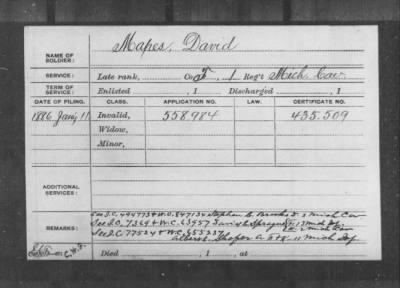 NAME OF SOLDIER: Mapes, David
SERVICE: Late rank, Co. F, 1 Reg't Mich. Cav.
TERM OF SERVICE: Enlisted , 1 Discharged , 1
DATE OF FILING. CLASS. APPLICATION NO. LAW. CERTIFICATE NO.
1886 Jan'y 11 Invalid, 558.984 435.509
Widow,
Minor,
ADDITIONAL SERVICES:
See I.C. 494773 & W.O. 847134 Stephen C. Brooks F. 1 Mich Cav
REMARKS: See I.C. 7369 & W.C. 63957 Sprague Mich
See I.C. 77524 & W.C. 655237
Albert Mich Inf
Died , 1 , at